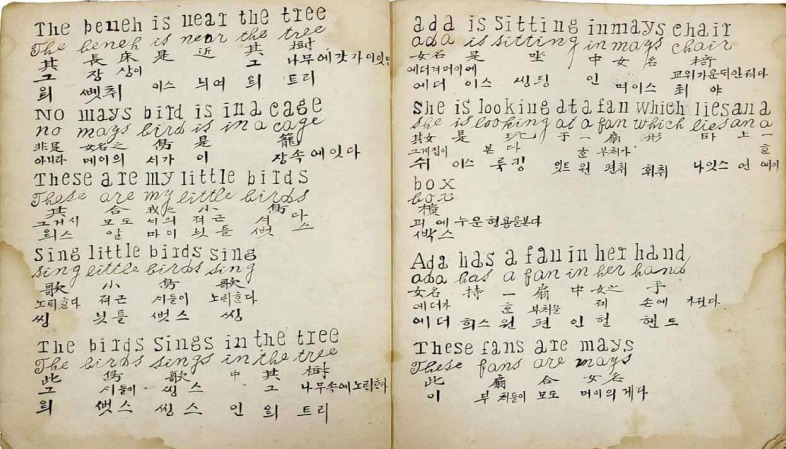 The beneh is near the tree
The beneh is near the tree
其 長床 是 近 其 樹
그 장상이 그 나무에 갓가이잇다
듸 벳취 이스 늬여 듸 트리
No mays bird is in a cage
no mays bird is in a cage
非是 女名之 鳥 是 籠
아니라 메이의 시가 이 장속에잇다
These are my little birds
These are my little birds
其 合 我之 小 鳥
그거시 모도 너의 져근 시다
듸스 알 마이 릿틀 뻣스
Sing little birds sing
sing little birds sing
歌 小 鳥 歌
노리한다 져근 시들이 노리한다
씽 릿틀 뻣스 씽
The birds Sings in the tree
The birds sings in the tree
此 鳥 歌 中 其 樹
그 시들이 그 나무속에노리한다
듸 뻣스 씽스 인 듸 트리
ada is Sitting in mays chair
ada is sitting in mays chair
女名 是 坐 中 女名 椅
에더 이스 씽팅 인 며이스 최야
She is looking at a fan which lies an a
she is looking at a fan which lies an a
其女 是 于 一 扇 上 一
그게집이 본다 부처가
쉬 이스 룩킹 잇트 원 휘취 나잇스 언 에이
box
box
樻
궤에 누운형용을본다
빡스
Ada has a fan in her hand
ada has a fan in her hand
女名 持 一 扇 中 女之 手
에더가 부처를 제 손에 가졋다
에더 희스 원 편 인 헐 핸트
These fans are mays
These fans are mays
此 扇 合 女名
이 부처들이 모도 머이의게다